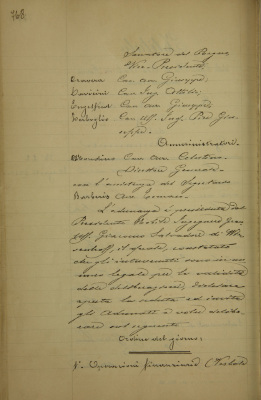 768
Senatore del Regno
Vice-Presidente
Cravera Cav. Avv. Giuseppe;
Cav. Ing.
Engelfred Cav. Avv. Giuseppe;
Cav. Uff. Ingr. Pio Giu-
seppe.
Amministratori
Cav. Avv. Celestino
Direttore Generale
con l'assistenza del Segretario
Barberis Avv.
L'adunanza è presieduta dal
Presidente Ingegnere Gran
Uff. Giacomo Salvadori di Wie-
senhoff, il quale, constatato
che gli intervenuti sono in nu-
mero legale per la validità
delle deliberazioni, dichiara
aperta la seduta ed invita
gli adunati a voler delibe-
rare sul seguente
Ordine del giorno:
1° Operazioni finanziarie